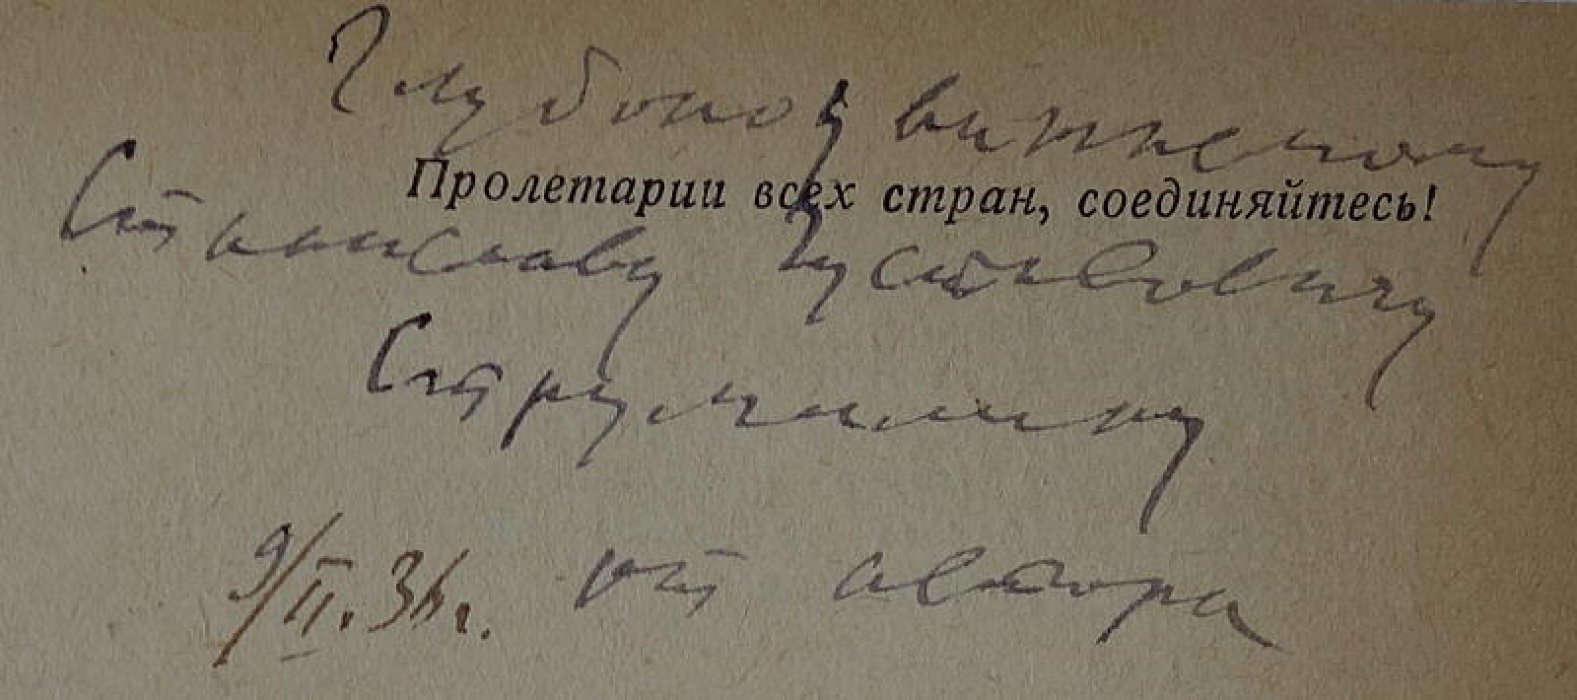 Глубокоуважаемому
Пролетарии всех стран, соединяйтесь!
Станиславу Густавовичу
Струмилину
9/II.36г. от автора